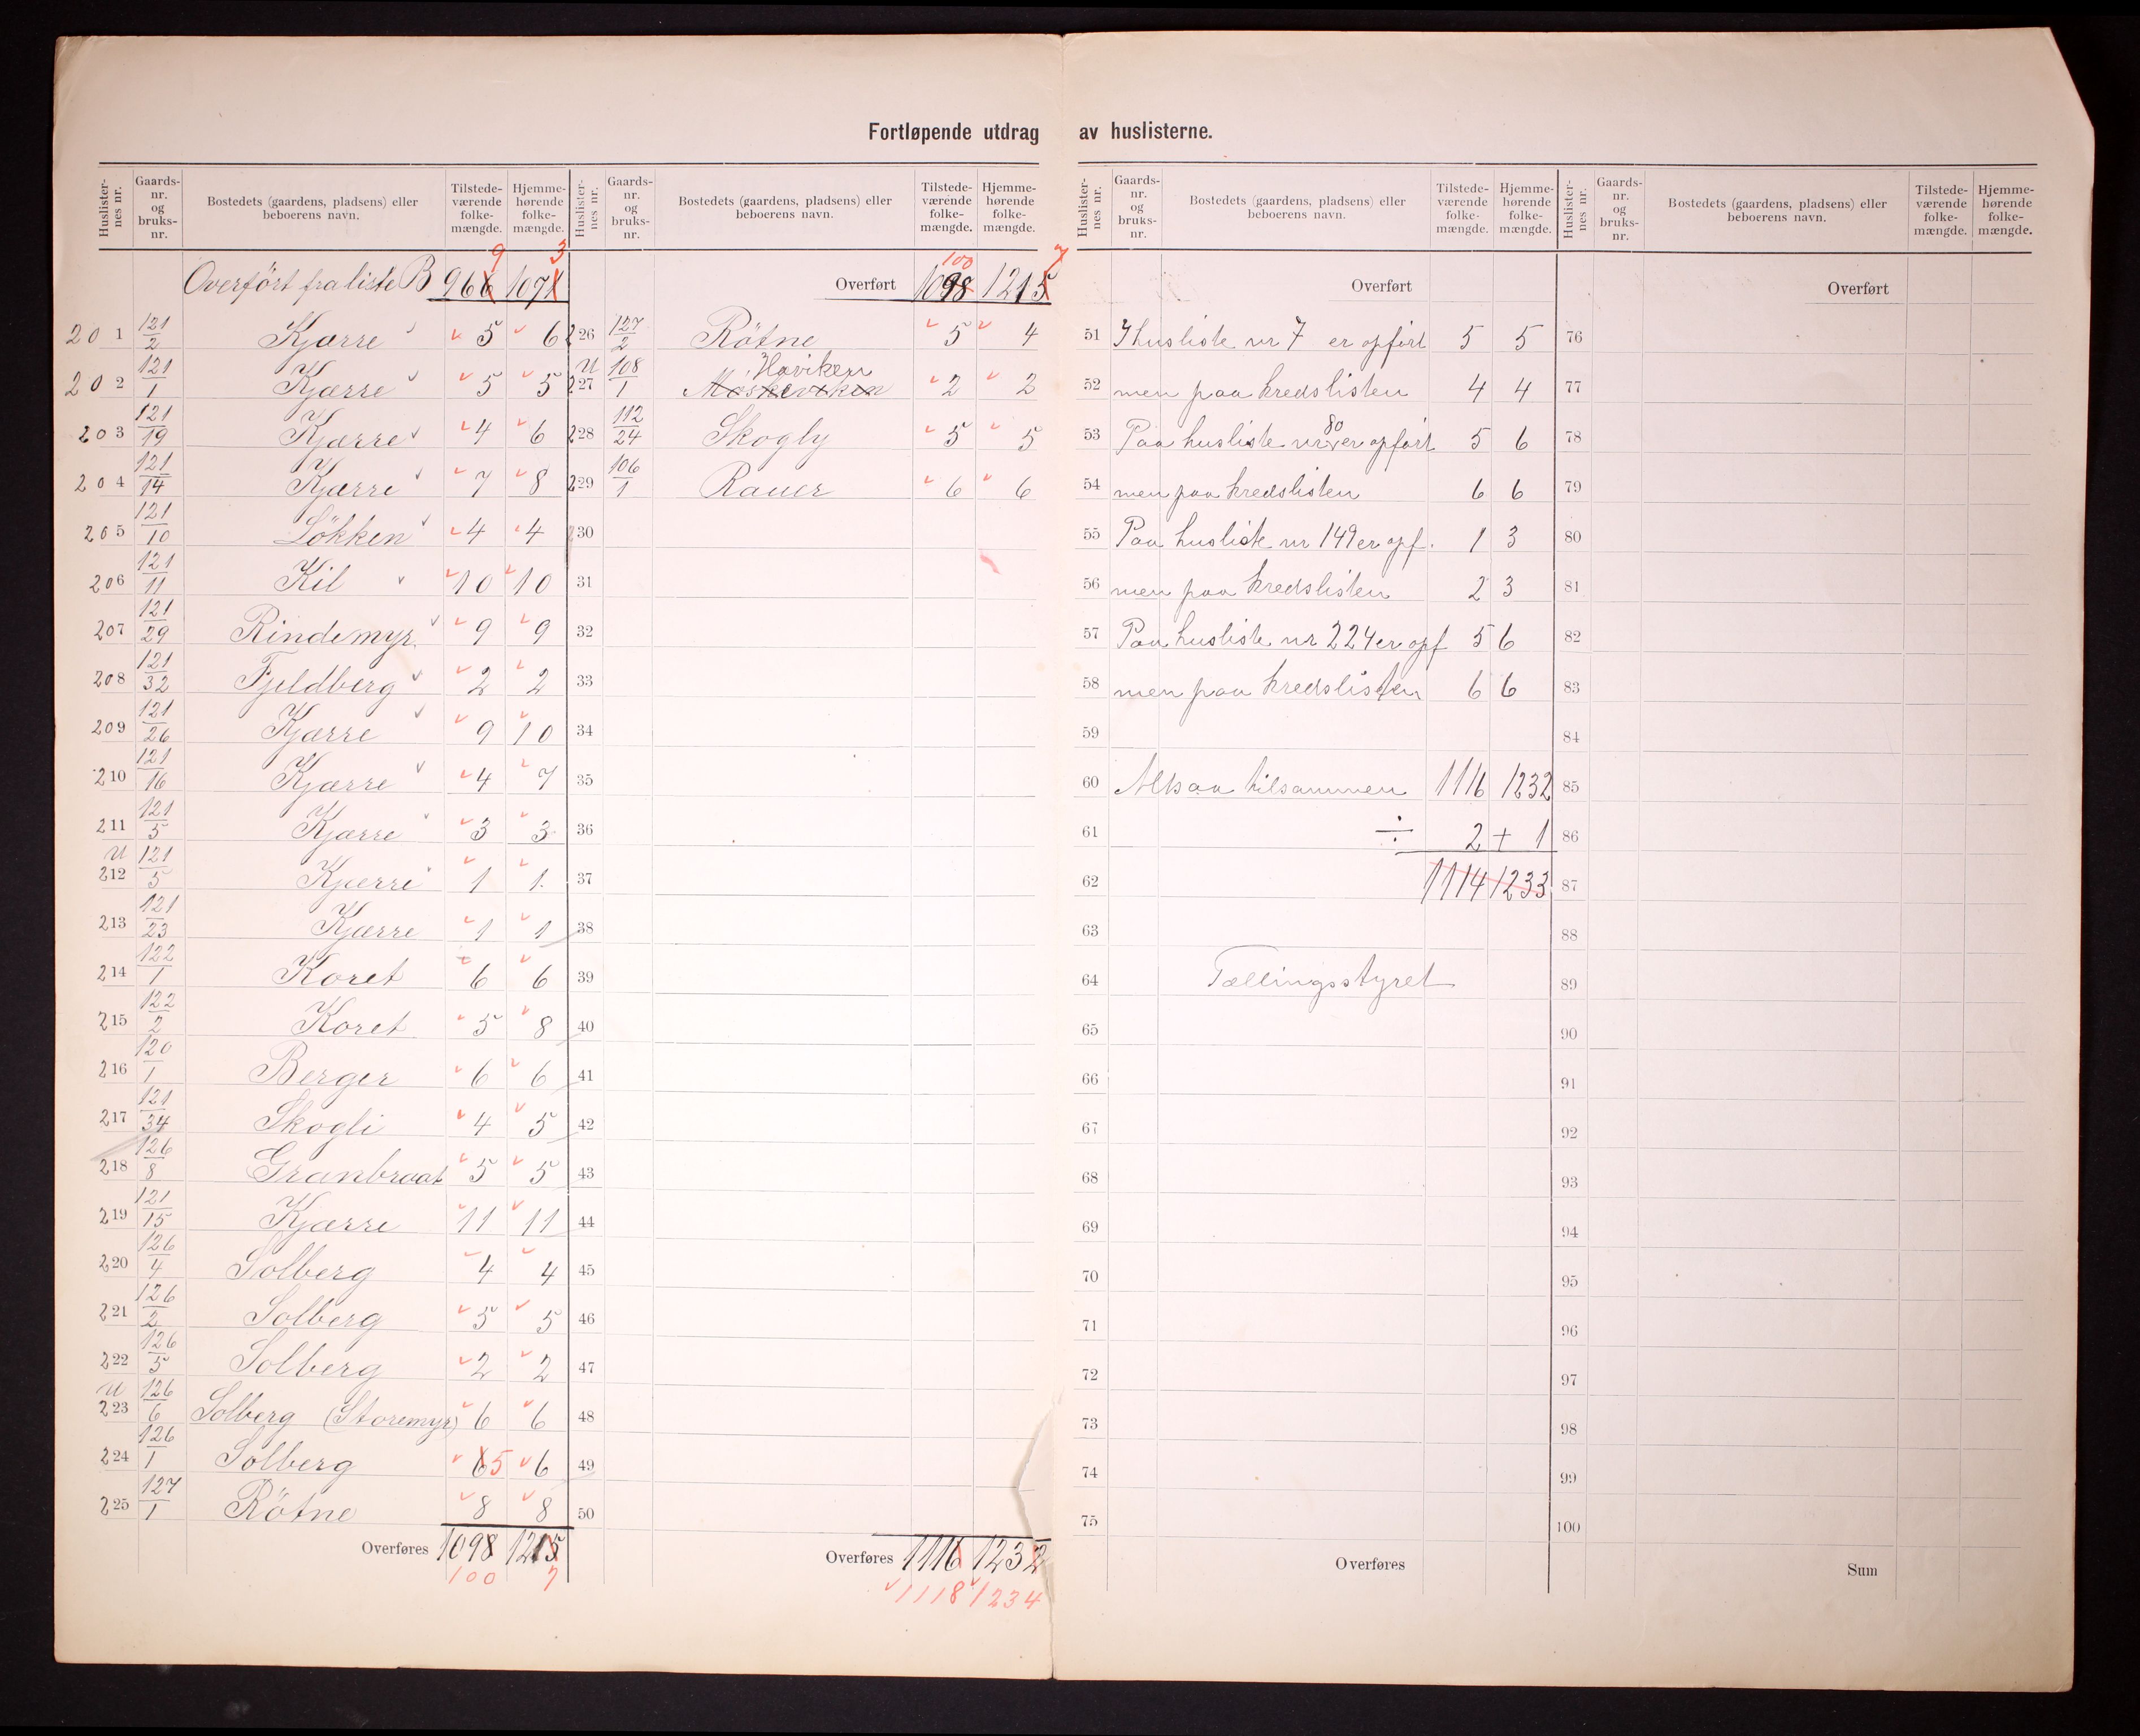 Fortløpende utdrag av huslisterne.
Huslisternes nr. Gaards-nr. og bruks-nr. Bostedets (gaardens, pladsens) eller beboerens navn. Tilstede-værende folke-mængde. Hjemme-hørende folke-mængde.
Overført fra liste B 966 9 1071 3
201 121/2 Kjærre 5 6
202 121/1 Kjærre 5 5
203 121/19 Kjærre 4 6
204 121/14 Kjærre 7 8
205 121/10 Løkken 4 4
206 121/11 Kil 10 10
207 121/29 Rindemyr 9 9
208 121/32 Fjeldberg 2 2
209 121/26 Kjærre 9 10
210 121/16 Kjærre 4 7
211 121/5 Kjærre 3 3
U 212 121/5 Kjærre 1 1
213 121/23 Kjærre 1 1
214 122/1 Koret 6 6
215 122/2 Koret 5 8
216 120/1 Berger 6 6
217 121/34 Skogli 4 5
218 126/8 Granbraat 5 5
219 121/15 Kjærre 11 11
220 126/4 Solberg 4 4
221 126/2 Solberg 5 5
222 126/5 Solberg 2 2
U 223 126/6 Solberg (Storemyr) 6 6
224 126/1 Solberg 6 5 6
225 127/1 Rötne 8 8
Overføres 1098 1215
100 7
Huslisternes nr. Gaards-nr. og bruks-nr. Bostedets (gaardens, pladsens) eller beboerens navn. Tilstede-værende folke-mængde. Hjemme-hørende folke-mængde.
100 7
Overført 1098 1215
226 127/2 Rötne 5 4
Haviken
U 227 108/1 2 2
228 112/24 Skogly 5 5
229 106/1 Rauer 6 6
30
31
32
33
34
35
36
37
38
39
40
41
42
43
44
45
46
47
48
49
50
Overføres 1116 1232
1118 1234
Huslisternes nr. Gaards-nr. og bruks-nr. Bostedets (gaardens, pladsens) eller beboerens navn. Tilstede-værende folke-mængde. Hjemme-hørende folke-mængde.
Overført
51 I husliste nr 7 er opført 5 5
52 men paa kredslisten 4 4
53 Paa husliste nr 80 er opført 5 6
54 men paa kredslisten 6 6
55 Paa husliste nr 149 er opf. 1 3
56 men paa kredslisten 2 3
57 Paa husliste nr 224 er opf 5 6
58 men paa kredslisten 6 6
59
60 Altsaa tilsammen 1116 1232
61 ÷ 2 + 1
62 1114 1233
63
64 Tællingsstyret
65
66
67
68
69
70
71
72
73
74
75
Overføres
Huslisternes nr. Gaards-nr. og bruks-nr. Bostedets (gaardens, pladsens) eller beboerens navn. Tilstede-værende folke-mængde. Hjemme-hørende folke-mængde.
Overført
76
77
78
79
80
81
82
83
84
85
86
87
88
89
90
91
92
93
94
95
96
97
98
99
100
Sum